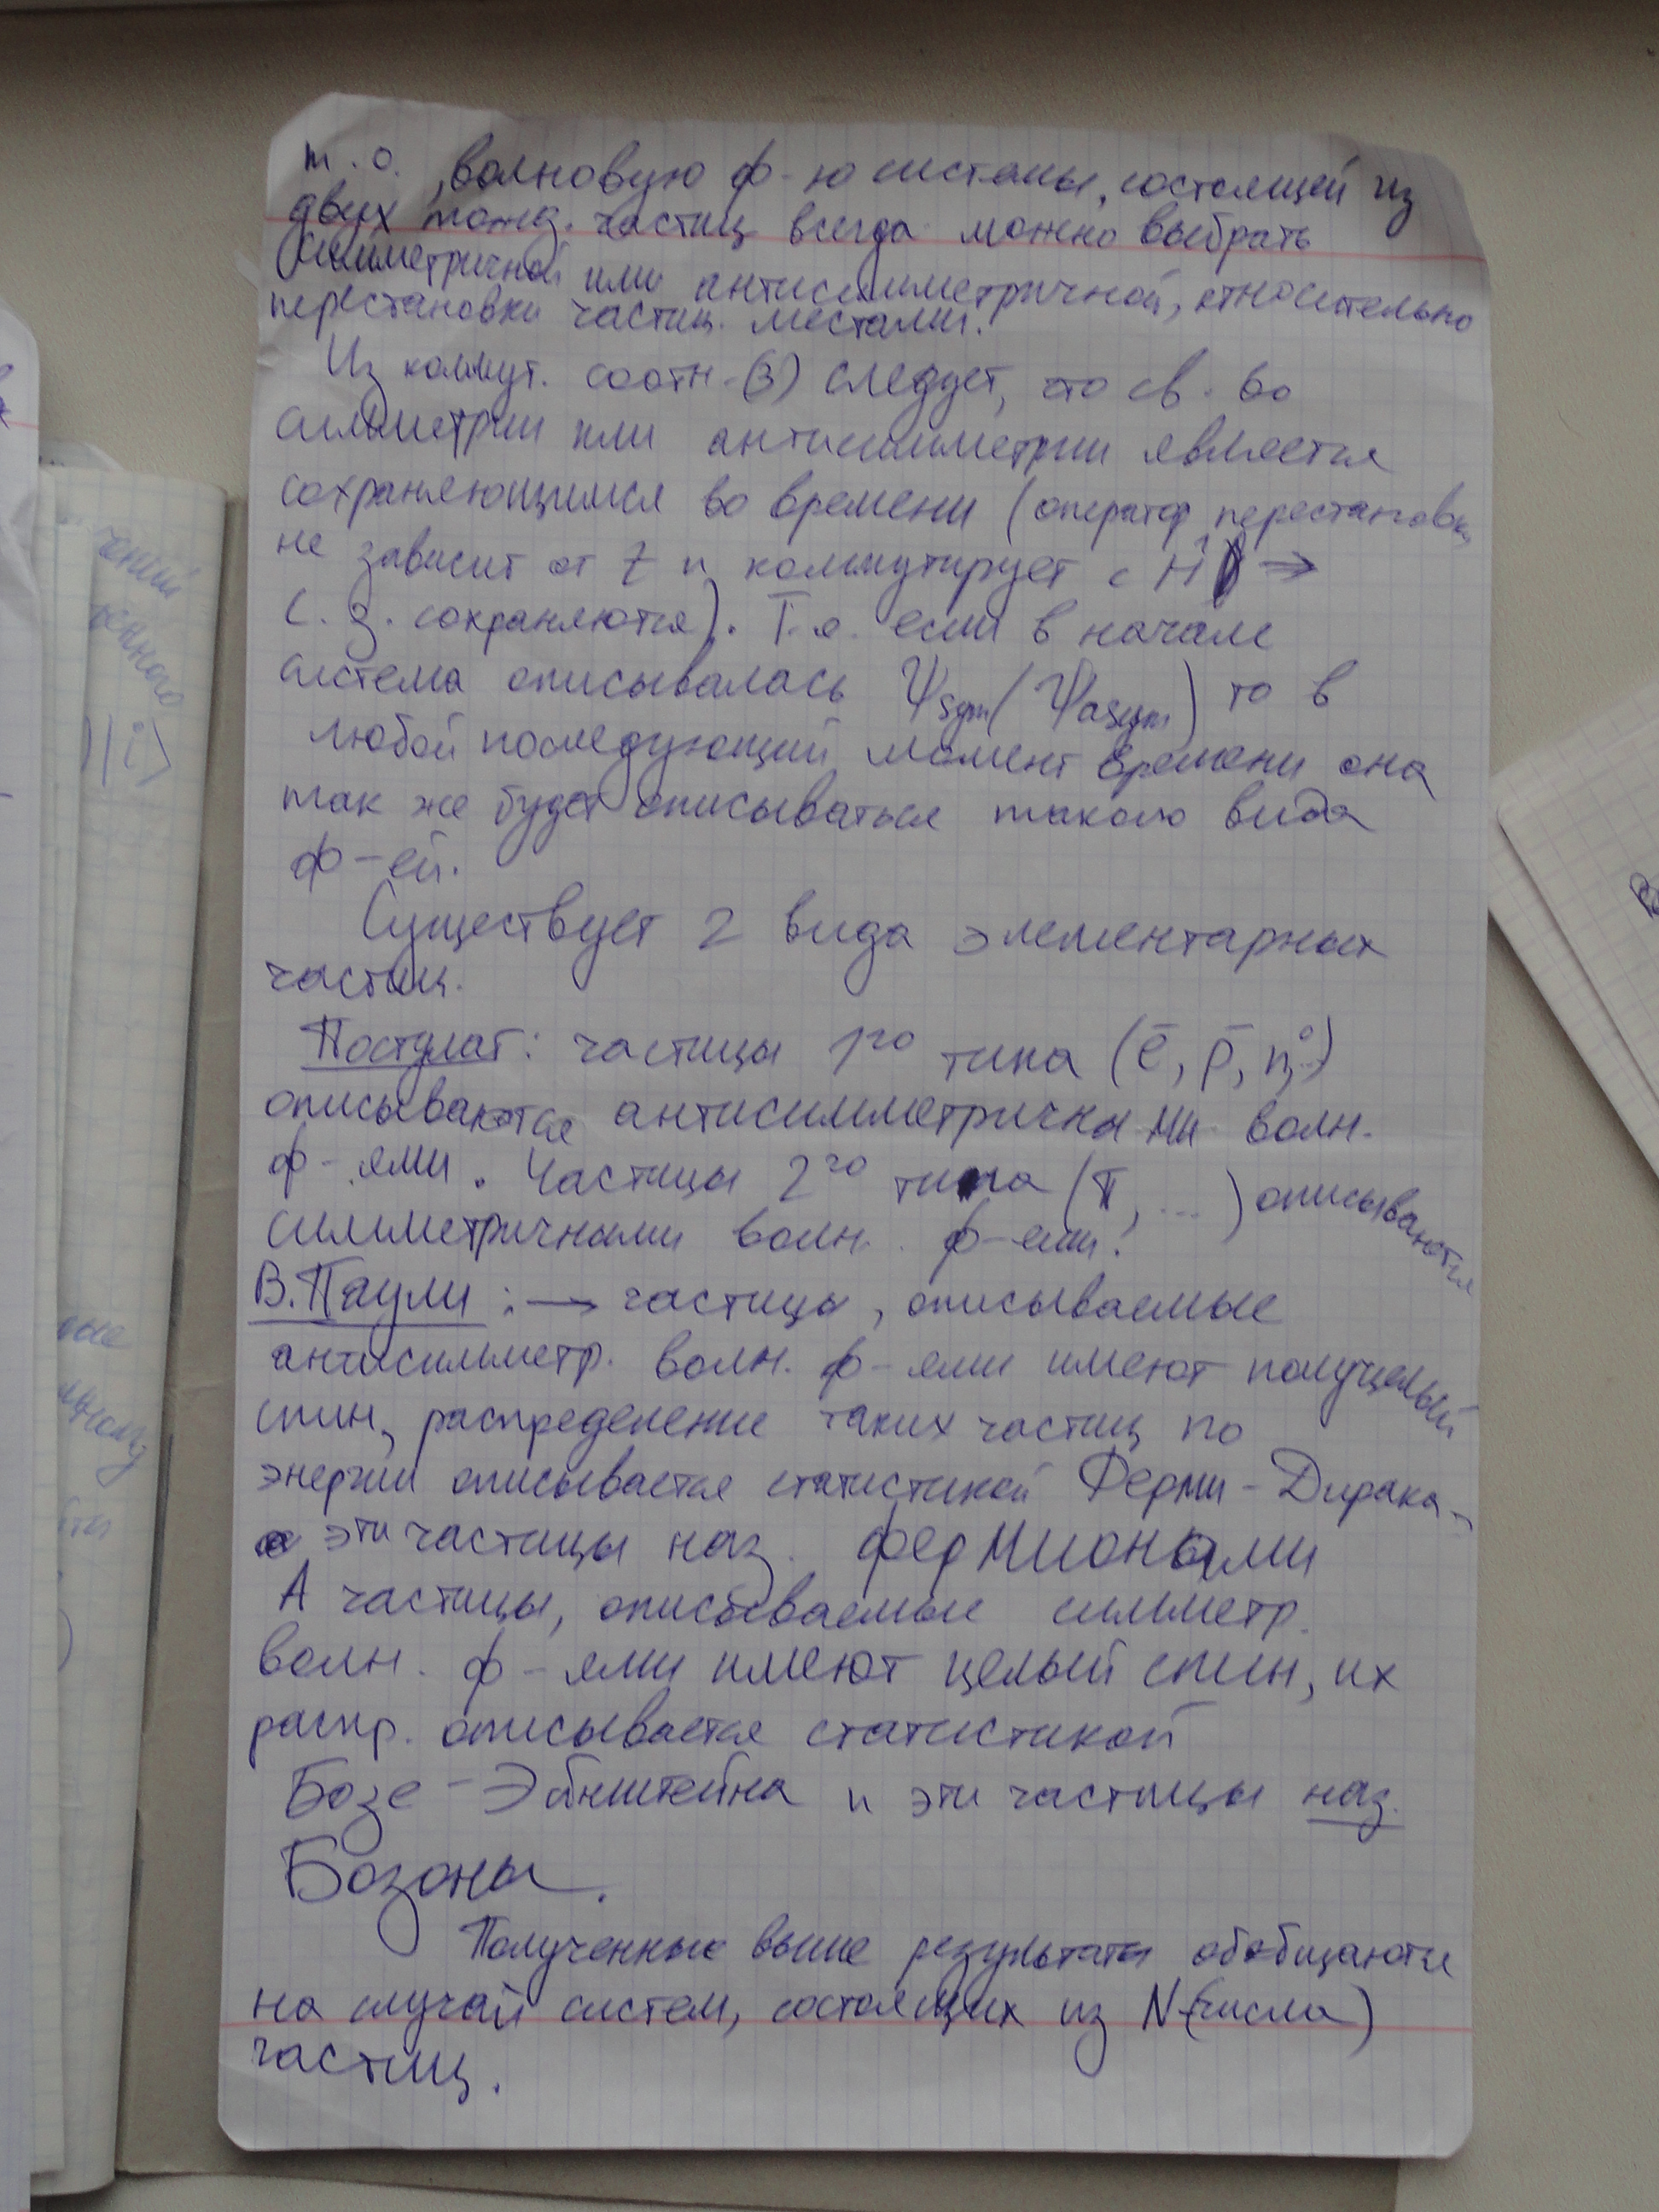 т.о., волновую ф-ю системы, состоящей из
двух тожд. частиц всегда можно выбрать
симметричной или антисимметричной, относительно
перестановки частиц местами.
Из коммут. соотн-(3) следует, что св-во
симметрии или антисимметрии является
сохраняющимся во времени (оператор перестановки
не зависит от t и коммутирует с Ĥ ⇒
с.з. сохраняются). Т.е. если в начале
система описывалась Ψsym (Ψasym) то в
любой последующий момент времени она
так же будет описываться такого вида
ф-ей.
Существует 2 вида элементарных
частиц.
Постулат: частицы 1го типа (e̅, p̅, n°..)
описываются антисимметричными волн.
ф-ями. Частицы 2го типа (π, ...) описываются
симметричными волн. ф-ями!
В. Паули: → частицы, описываемые
антисимметр. волн. ф-ями имеют полуцелый
спин, распределение таких частиц по
энергии описывается статистикой Ферми-Дирака -
эти частицы наз. фермионами
А частицы, описываемые симметр.
волн. ф-ями имеют целый спин, их
распр. описывается статистикой
Бозе-Эйнштейна и эти частицы наз.
Бозоны.
Полученные выше результаты обобщаются
на случай систем, состоящих из N-(числа)
частиц.
чений
енного
)|i>